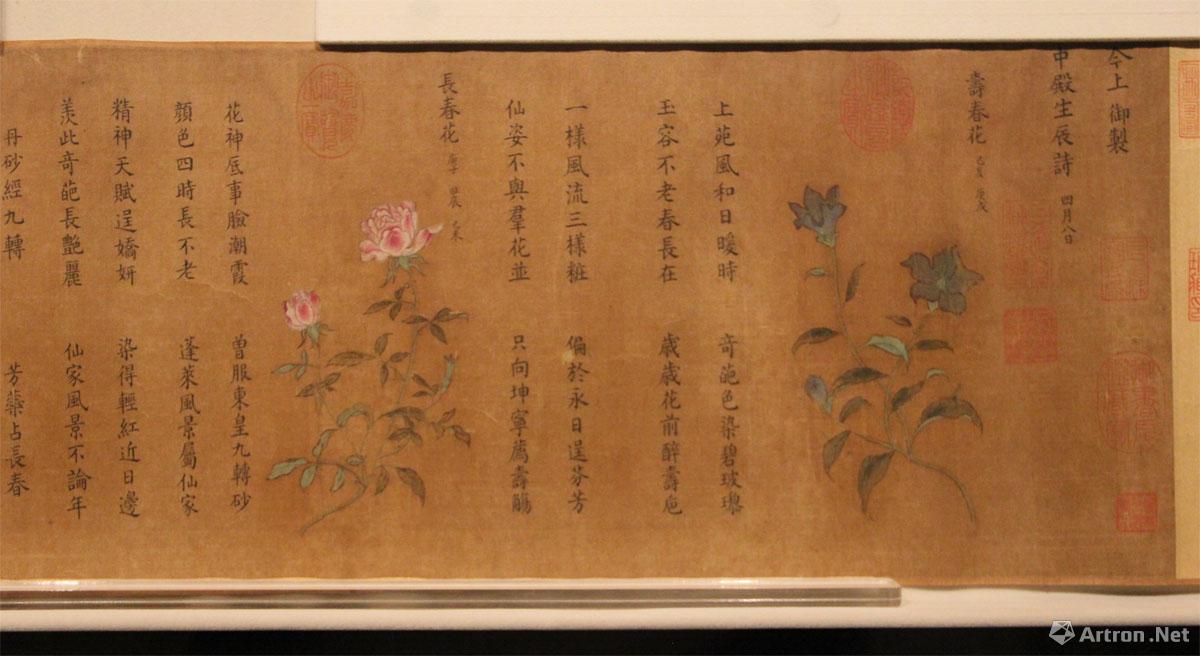 今上 御製
中殿生辰詩 四月八日
壽春花 己亥 庚戌
上苑風和日暖時 奇葩色染碧玻瓈
玉容不老春長在 歲歲花前醉壽巵
一樣風流三樣粧 偏於永日逞芬芳
仙姿不與羣花並 只向坤寧薦壽觴
長春花 庚子 甲辰 乙未
花神底事臉潮霞 曾服東皇九轉砂
顏色四時長不老 蓬萊風景屬仙家
精神天賦逞嬌妍 染得輕紅近日邊
羨此奇葩長艷麗 仙家風景不論年
丹砂經九轉 芳蘂占長春
Artron.Net